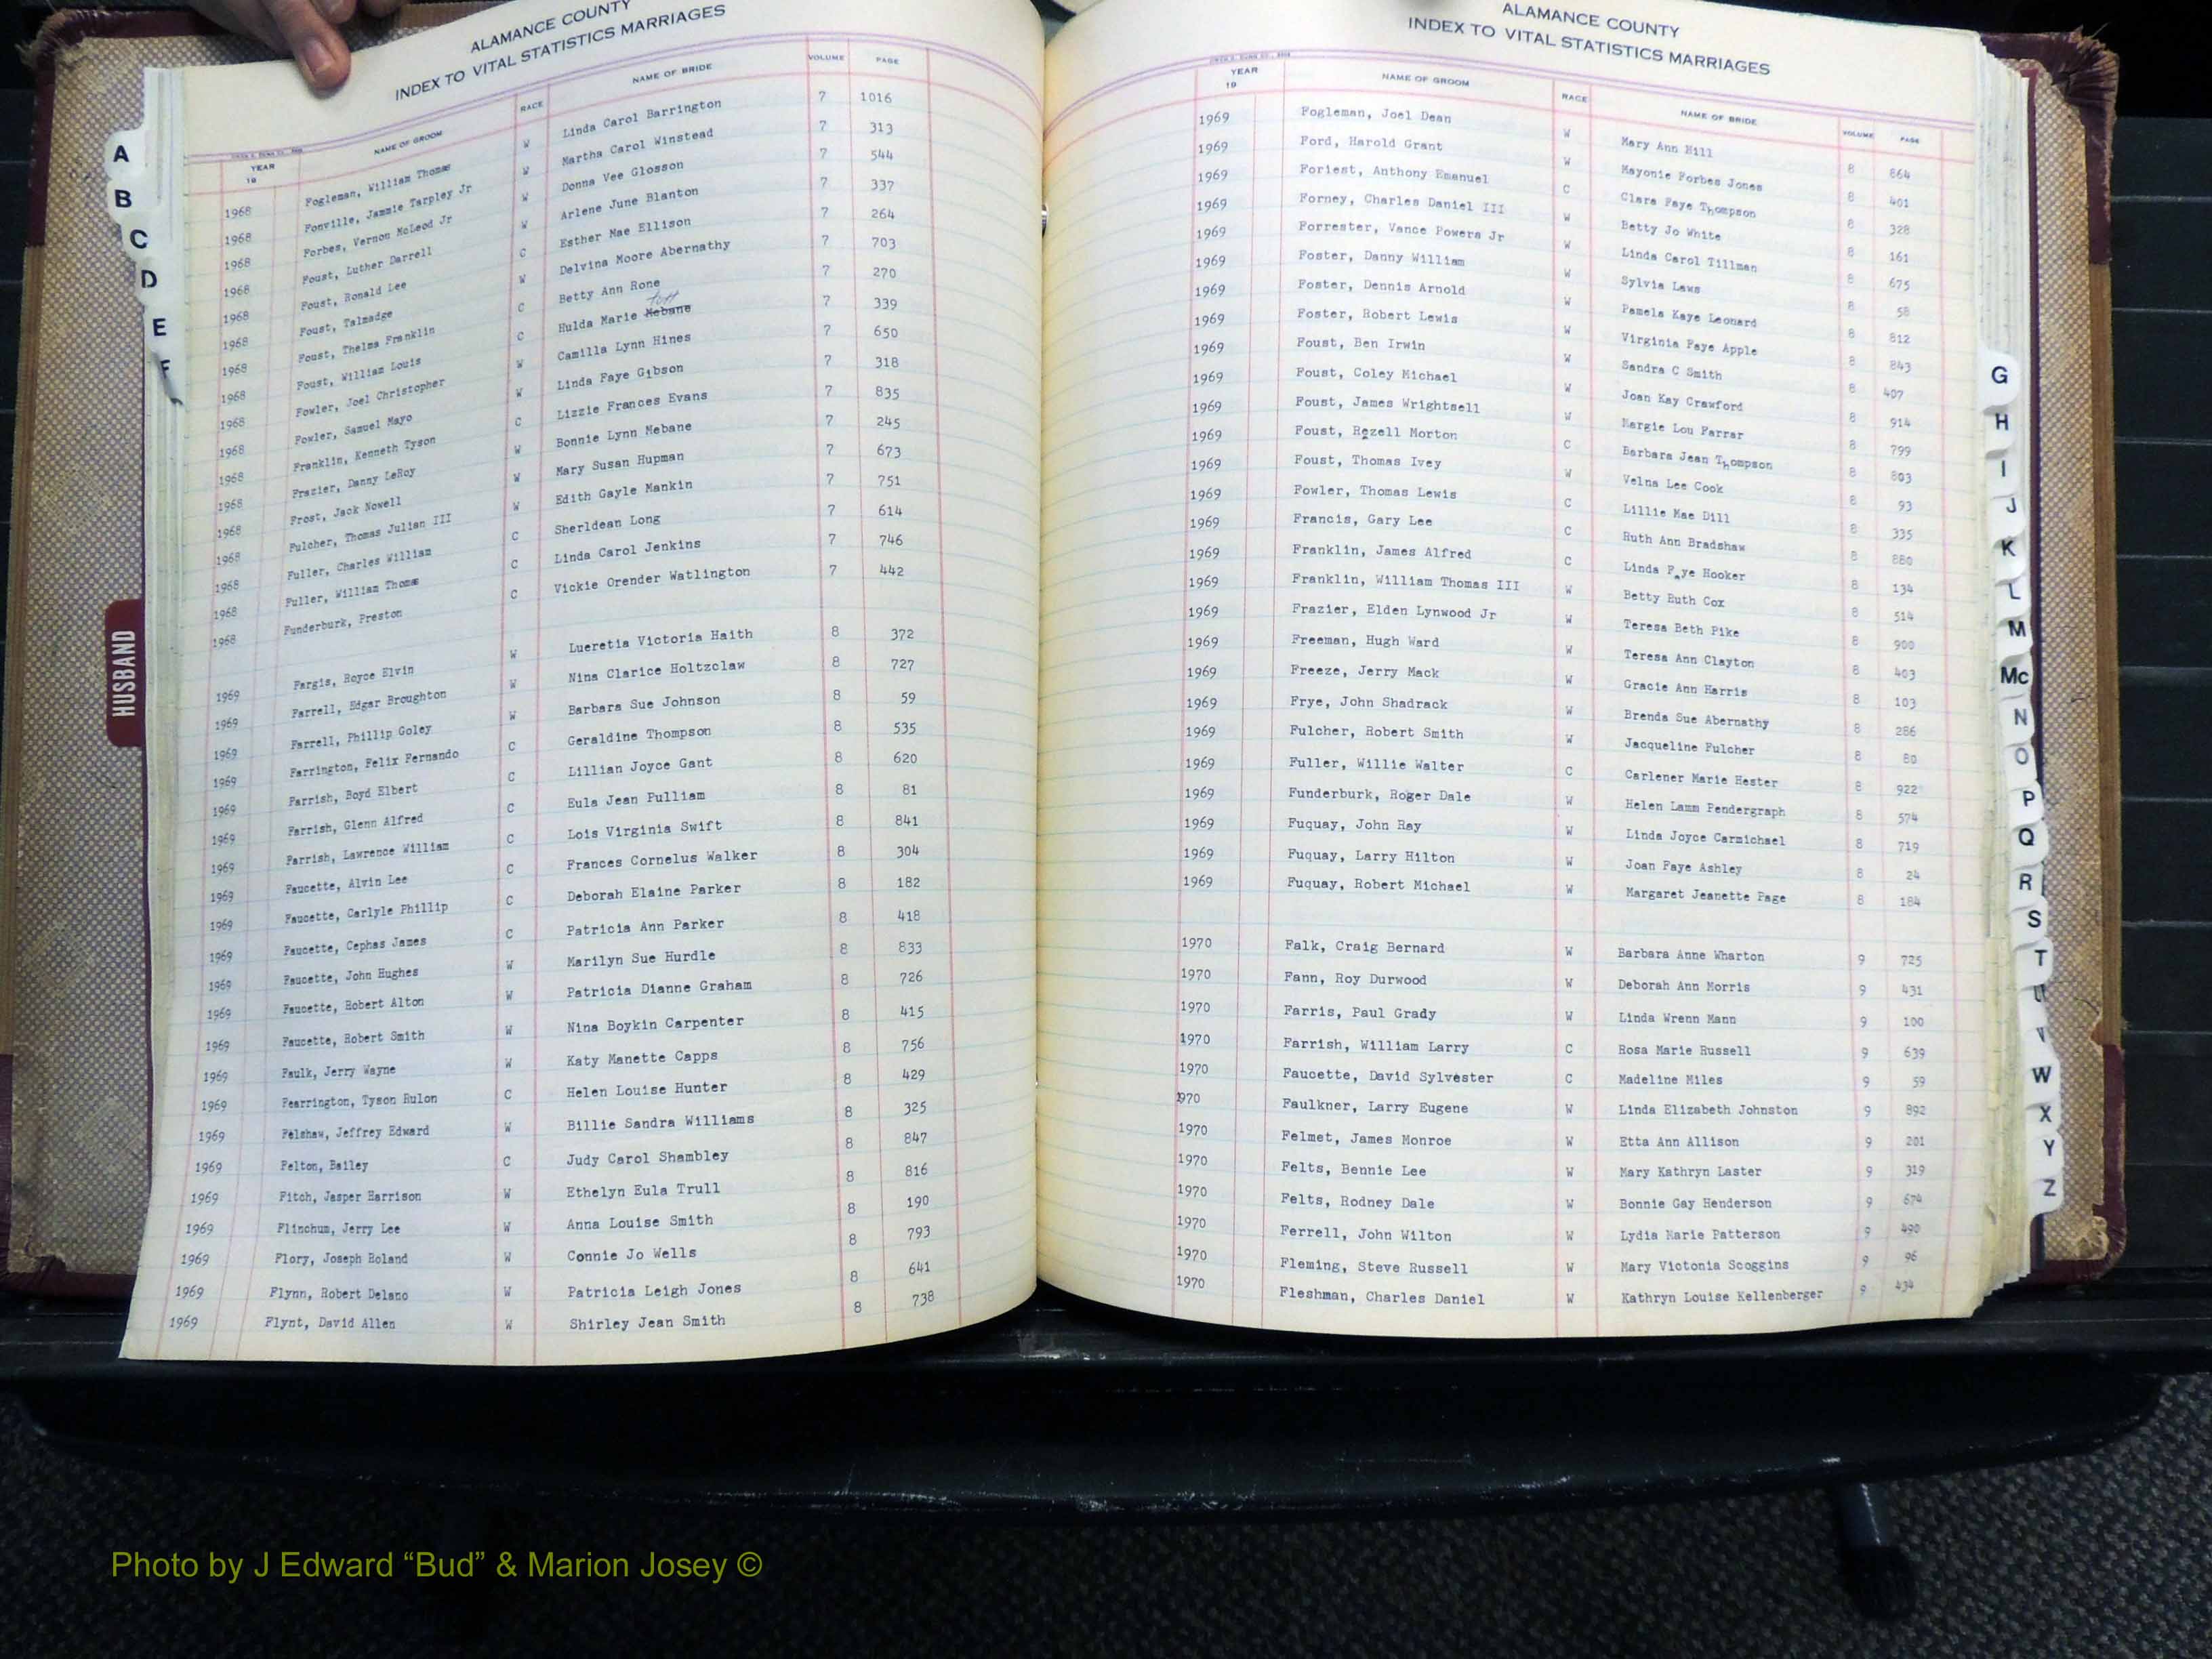 ALAMANCE COUNTY
INDEX TO VITAL STATISTICS MARRIAGES
YEAR 19 NAME OF GROOM RACE NAME OF BRIDE VOLUME PAGE
1968 Fogleman, William Thomas W Linda Carol Barrington 7 1016
1968 Fonville, Jammie Tarpley Jr W Martha Carol Winstead 7 313
1968 Forbes, Vernon McLeod Jr W Donna Vee Glosson 7 544
1968 Foust, Luther Darrell W Arlene June Blanton 7 337
1968 Foust, Ronald Lee C Esther Mae Ellison 7 264
1968 Foust, Talmadge W Delvina Moore Abernathy 7 703
1968 Foust, Thelma Franklin C Betty Ann Rone 7 270
1968 Foust, William Louis C Hulda Marie Mebane 7 339
1968 Fowler, Joel Christopher W Camilla Lynn Hines 7 650
1968 Fowler, Samuel Mayo W Linda Faye Gibson 7 318
1968 Franklin, Kenneth Tyson C Lizzie Frances Evans 7 835
1968 Frazier, Danny LeRoy W Bonnie Lynn Mebane 7 245
1968 Frost, Jack Nowell W Mary Susan Hupman 7 673
1968 Fulcher, Thomas Julian III W Edith Gayle Mankin 7 751
1968 Fuller, Charles William C Sherldean Long 7 614
1968 Fuller, William Thomas C Linda Carol Jenkins 7 746
1968 Funderburk, Preston C Vickie Orender Watlington 7 442
1969 Fargis, Royce Elvin W Lueretia Victoria Haith 8 372
1969 Farrell, Edgar Broughton W Nina Clarice Holtzclaw 8 727
1969 Farrell, Phillip Goley W Barbara Sue Johnson 8 59
1969 Farrington, Felix Fernando C Geraldine Thompson 8 535
1969 Farrish, Boyd Elbert C Lillian Joyce Gant 8 620
1969 Farrish, Glenn Alfred C Eula Jean Pulliam 8 81
1969 Farrish, Lawrence William C Lois Virginia Swift 8 841
1969 Faucette, Alvin Lee C Frances Cornelus Walker 8 304
1969 Faucette, Carlyle Phillip C Deborah Elaine Parker 8 182
1969 Faucette, Cephas James C Patricia Ann Parker 8 418
1969 Faucette, John Hughes W Marilyn Sue Hurdle 8 833
1969 Faucette, Robert Alton W Patricia Dianne Graham 8 726
1969 Faucette, Robert Smith W Nina Boykin Carpenter 8 415
1969 Faulk, Jerry Wayne W Katy Manette Capps 8 756
1969 Fearrington, Tyson Rulon C Helen Louise Hunter 8 429
1969 Felshaw, Jeffrey Edward W Billie Sandra Williams 8 325
1969 Felton, Bailey C Judy Carol Shambley 8 847
1969 Fitch, Jasper Harrison W Ethelyn Eula Trull 8 816
1969 Flinchum, Jerry Lee W Anna Louise Smith 8 190
1969 Flory, Joseph Roland W Connie Jo Wells 8 793
1969 Flynn, Robert Delano W Patricia Leigh Jones 8 641
1969 Flynt, David Allen W Shirley Jean Smith 8 738
ALAMANCE COUNTY
INDEX TO VITAL STATISTICS MARRIAGES
YEAR 19 NAME OF GROOM RACE NAME OF BRIDE VOLUME PAGE
1969 Fogleman, Joel Dean W Mary Ann Hill 8 864
1969 Ford, Harold Grant W Mayonie Forbes Jones 8 401
1969 Foriest, Anthony Emanuel C Clara Faye Thompson 8 328
1969 Forney, Charles Daniel III W Betty Jo White 8 161
1969 Forrester, Vance Powers Jr W Linda Carol Tillman 8 675
1969 Foster, Danny William W Sylvia Laws 8 58
1969 Foster, Dennis Arnold W Pamela Kaye Leonard 8 812
1969 Foster, Robert Lewis W Virginia Faye Apple 8 843
1969 Foust, Ben Irwin W Sandra C Smith 8 407
1969 Foust, Coley Michael W Joan Kay Crawford 8 914
1969 Foust, James Wrightsell W Margie Lou Farrar 8 799
1969 Foust, Rezell Morton C Barbara Jean Thompson 8 803
1969 Foust, Thomas Ivey W Velna Lee Cook 8 93
1969 Fowler, Thomas Lewis C Lillie Mae Dill 8 335
1969 Francis, Gary Lee C Ruth Ann Bradshaw 8 880
1969 Franklin, James Alfred C Linda Faye Hooker 8 134
1969 Franklin, William Thomas III W Betty Ruth Cox 8 514
1969 Frazier, Elden Lynwood Jr W Teresa Beth Pike 8 900
1969 Freeman, Hugh Ward W Teresa Ann Clayton 8 403
1969 Freeze, Jerry Mack W Gracie Ann Harris 8 103
1969 Frye, John Shadrack W Brenda Sue Abernathy 8 286
1969 Fulcher, Robert Smith W Jacqueline Fulcher 8 80
1969 Fuller, Willie Walter C Carlener Marie Hester 8 922
1969 Funderburk, Roger Dale W Helen Lamm Pendergraph 8 574
1969 Fuquay, John Ray W Linda Joyce Carmichael 8 719
1969 Fuquay, Larry Hilton W Joan Faye Ashley 8 24
1969 Fuquay, Robert Michael W Margaret Jeanette Page 8 184
1970 Falk, Craig Bernard W Barbara Anne Wharton 9 725
1970 Fann, Roy Durwood W Deborah Ann Morris 9 431
1970 Farris, Paul Grady W Linda Wrenn Mann 9 100
1970 Farrish, William Larry C Rosa Marie Russell 9 639
1970 Faucette, David Sylvester C Madeline Miles 9 59
1970 Faulkner, Larry Eugene W Linda Elizabeth Johnston 9 892
1970 Felmet, James Monroe W Etta Ann Allison 9 201
1970 Felts, Bennie Lee W Mary Kathryn Laster 9 319
1970 Felts, Rodney Dale W Bonnie Gay Henderson 9 674
1970 Ferrell, John Wilton W Lydia Marie Patterson 9 490
1970 Fleming, Steve Russell W Mary Victonia Scoggins 9 96
1970 Fleshman, Charles Daniel W Kathryn Louise Kellenberger 9 434
A
B
C
D
E
F
HUSBAND
G
H
I
J
K
L
M
Mc
N
O
P
Q
R
S
T
U
V
W
X
Y
Z
Photo by J Edward “Bud” & Marion Josey ©